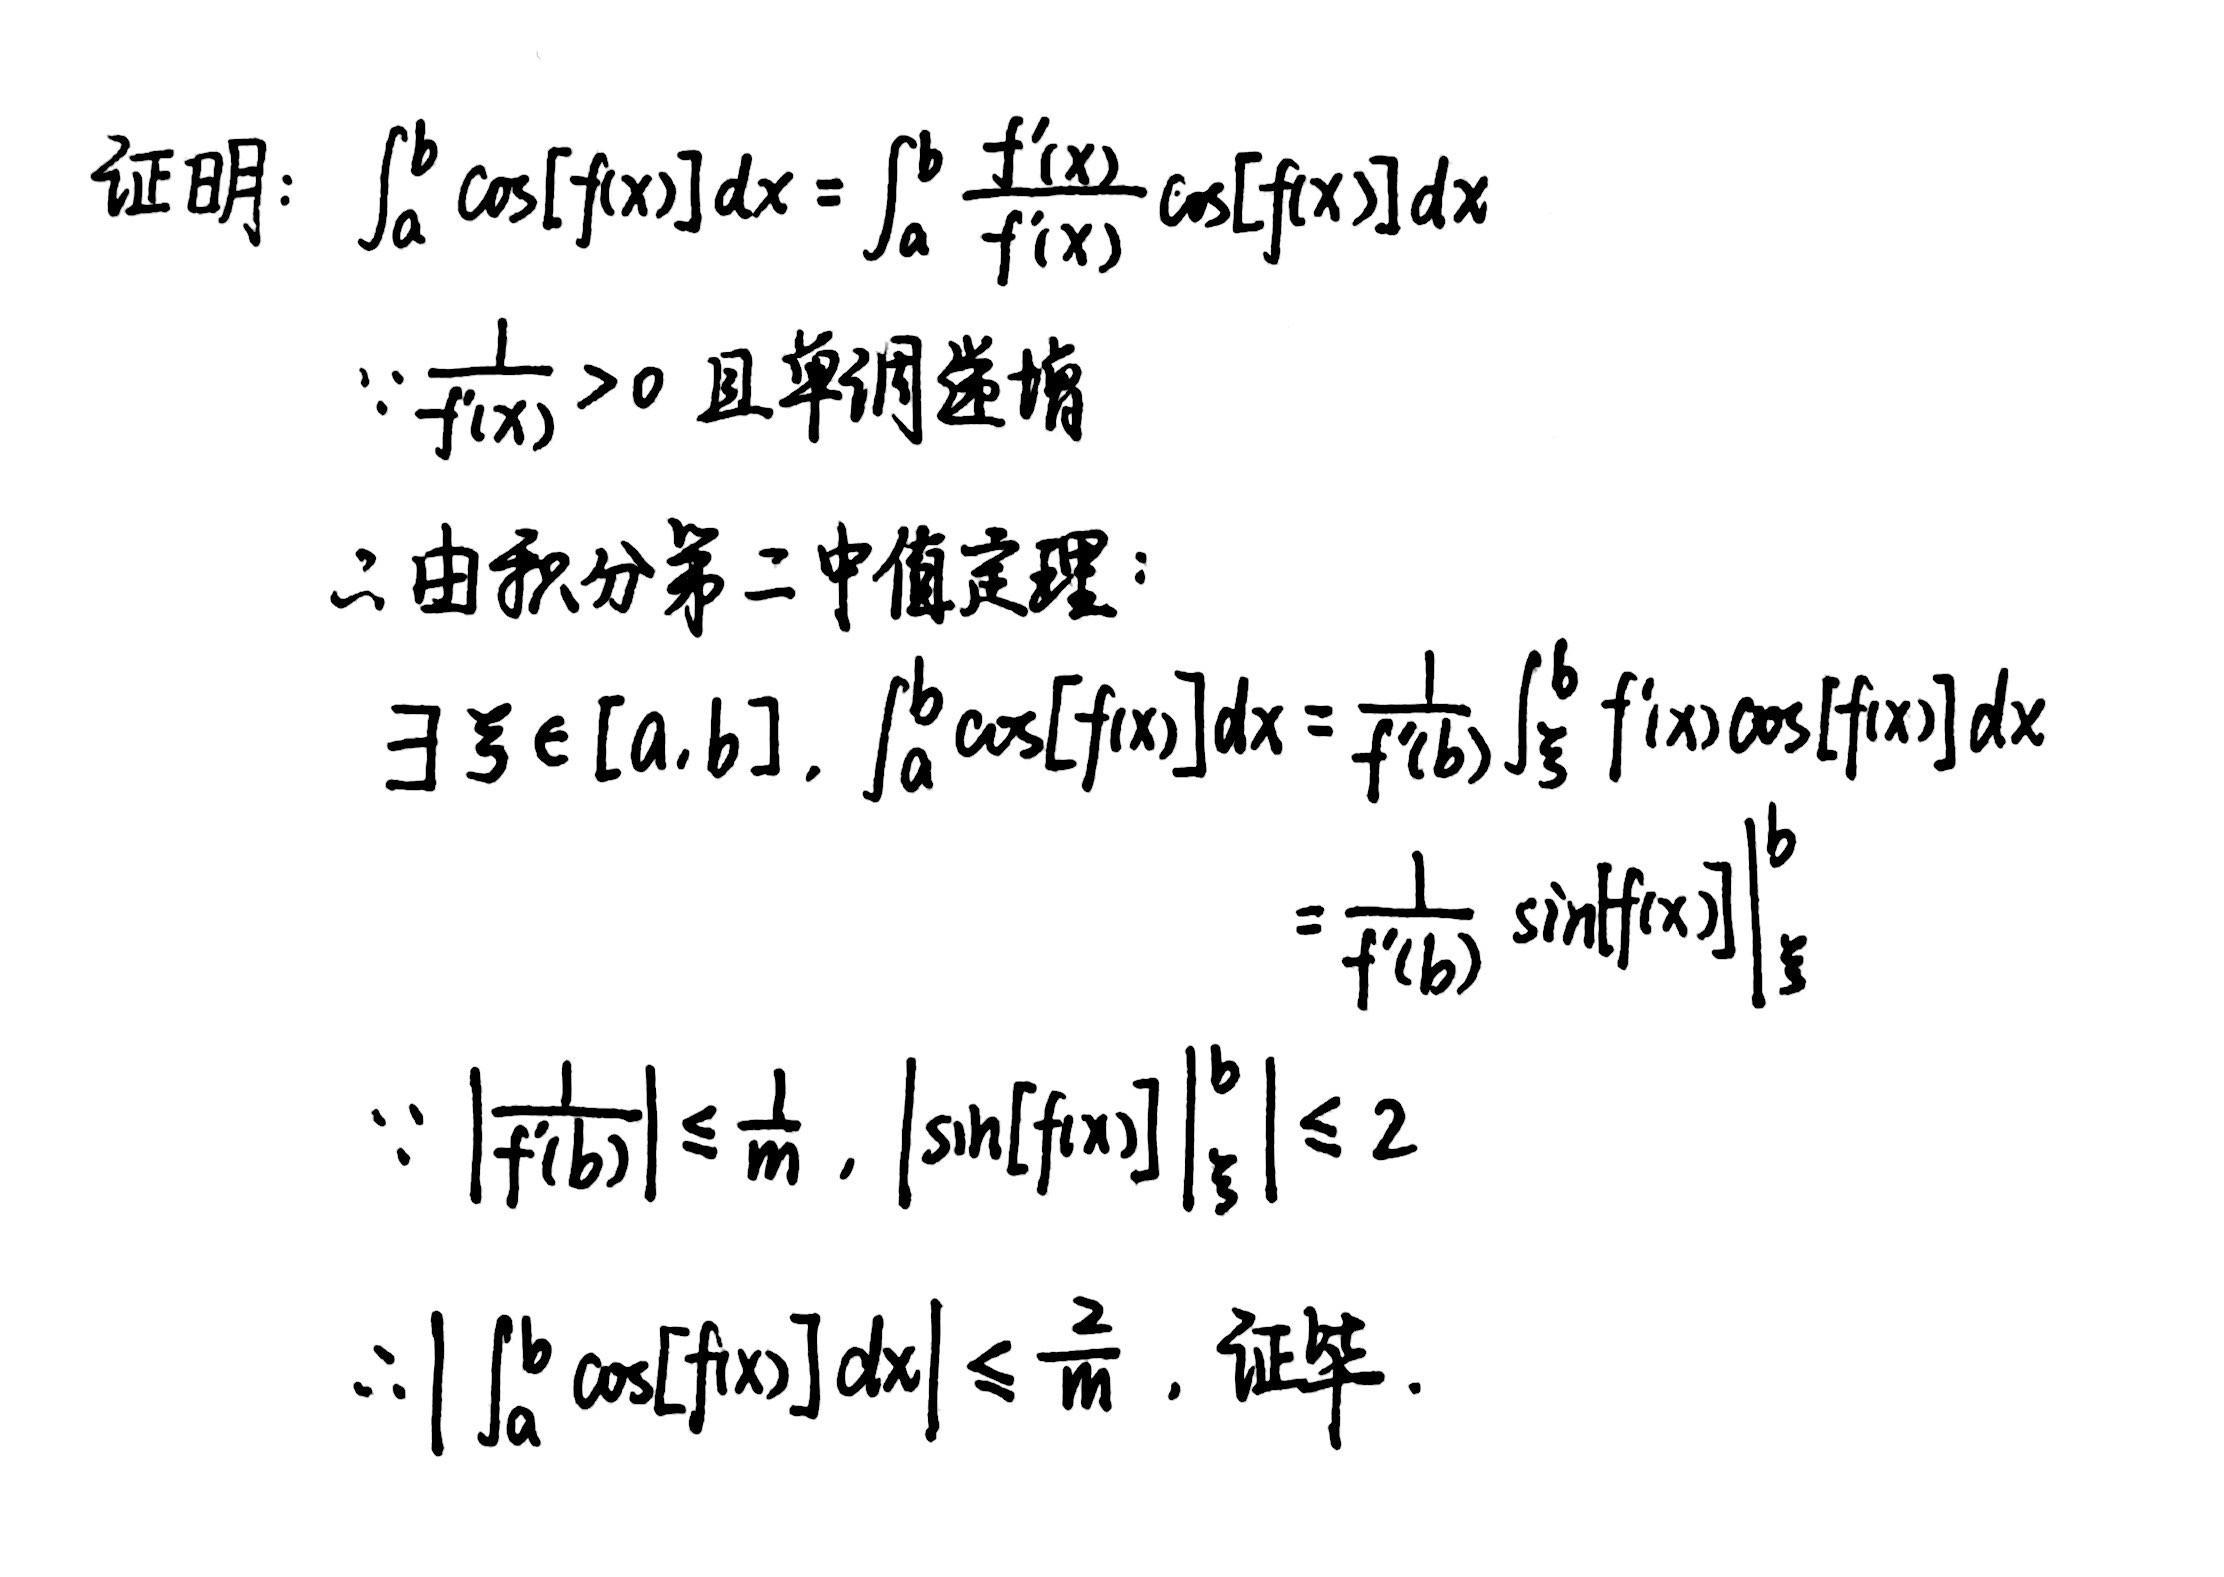 证明: ∫_a^b cos[f(x)]dx = ∫_a^b \frac{f'(x)}{f'(x)} cos[f(x)]dx
∵ \frac{1}{f'(x)} > 0 且单调递增
∴ 由积分第二中值定理:
∃ ξ ∈ [a, b], ∫_a^b cos[f(x)]dx = \frac{1}{f'(b)} ∫_ξ^b f'(x) cos[f(x)]dx
= \frac{1}{f'(b)} sin[f(x)] |_ξ^b
∵ |\frac{1}{f'(b)}| ≤ \frac{1}{m}, |sin[f(x)] |_ξ^b| ≤ 2
∴ |∫_a^b cos[f(x)]dx| ≤ \frac{2}{m}, 证毕.